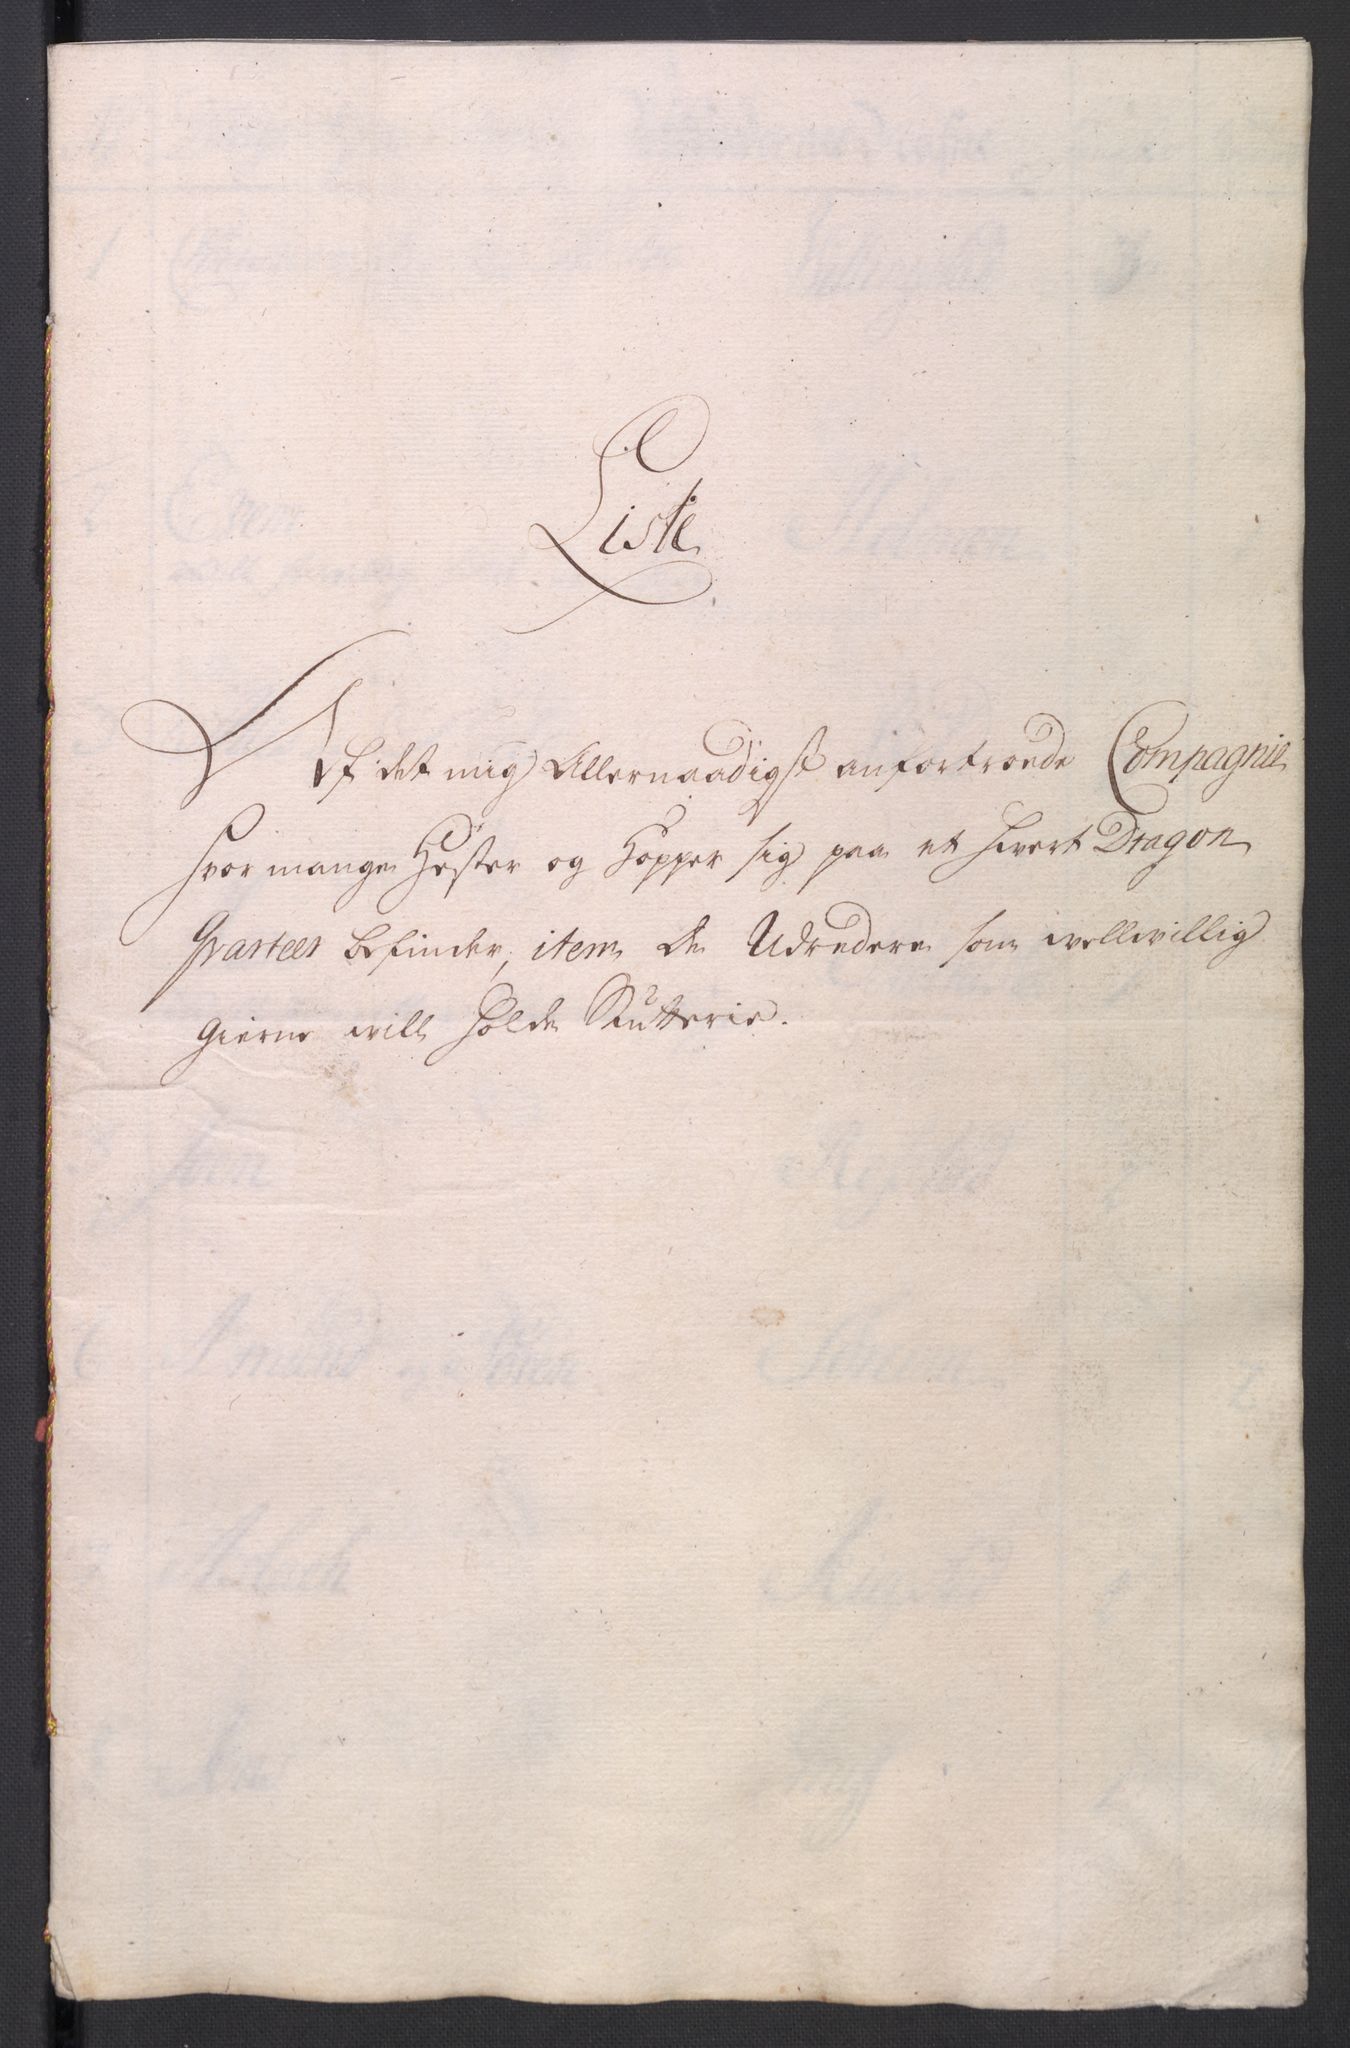 Liste
Af det mig Allernaadigst anfortroede Compagnie
hvor mange Hester og Hopper sig paa et hvert Dragon
Qvarteer befinder, item de Udredere som velvillig
gierne will holde Stutterie.